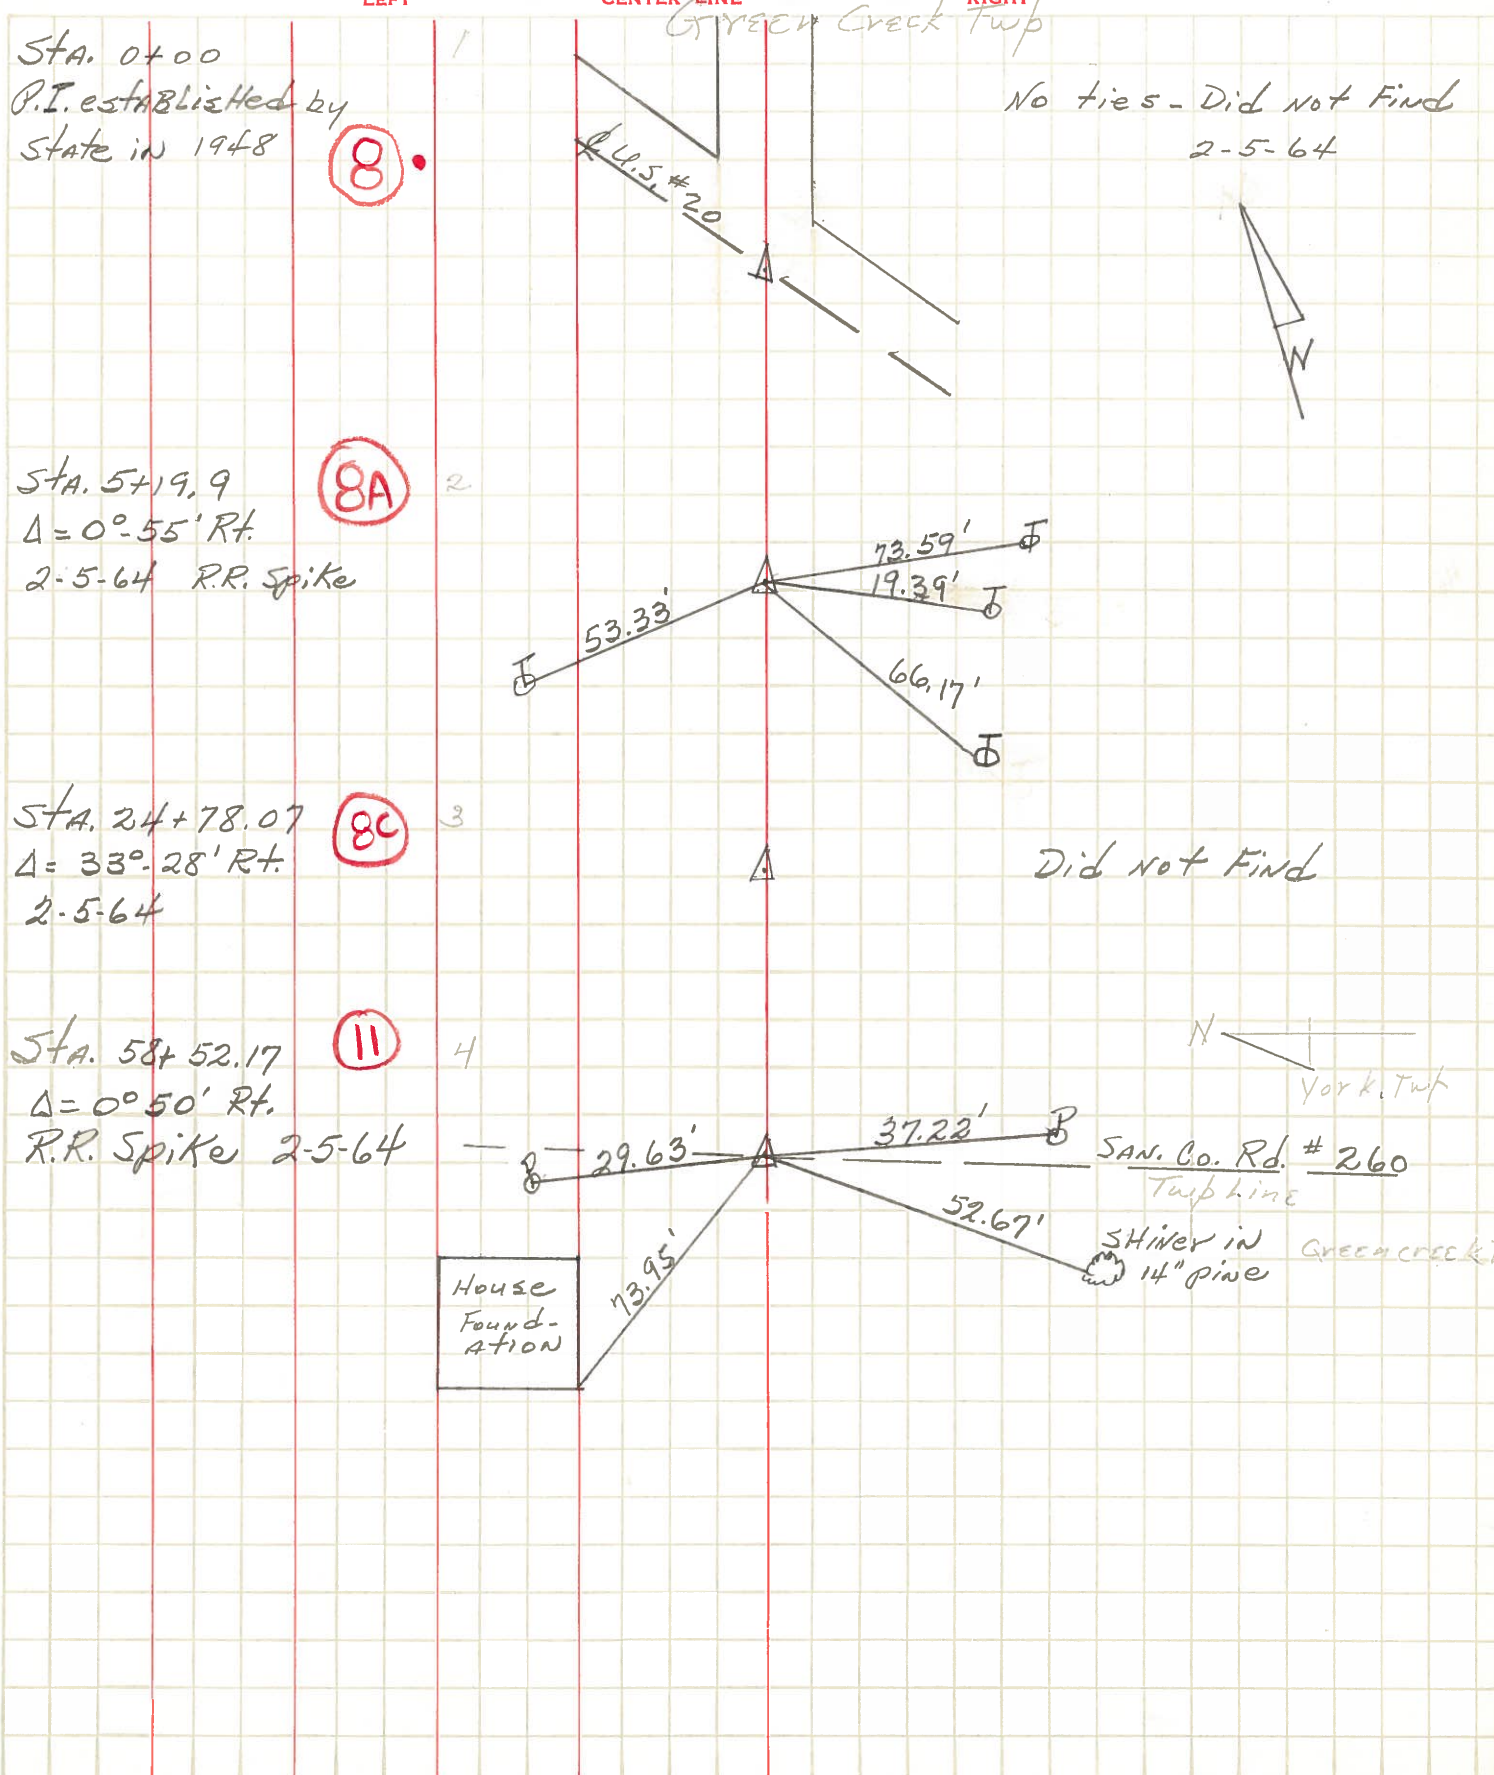 LEFT CENTER LINE RIGHT
Green Creek Twp
Sta. 0+00
P.I. establisHed by
State in 1948
8
1
No ties - Did Not Find
2-5-64
℄ U.S. #20
N
Sta. 5+19.9
Δ = 0°-55' Rt.
2-5-64 R.R. Spike
8A
2
73.59'
19.39'
53.33'
66.17'
Sta. 24+78.07
Δ = 33°-28' Rt.
2-5-64
8C
3
Did Not Find
Sta. 58+52.17
Δ = 0°50' Rt.
R.R. Spike 2-5-64
11
4
N
York. Twp
29.63'
37.22'
P
SAN. Co. Rd. #260
Twp Line
52.67'
SHiner in
14" pine
Greencreek
73.95'
House
Found-
ation